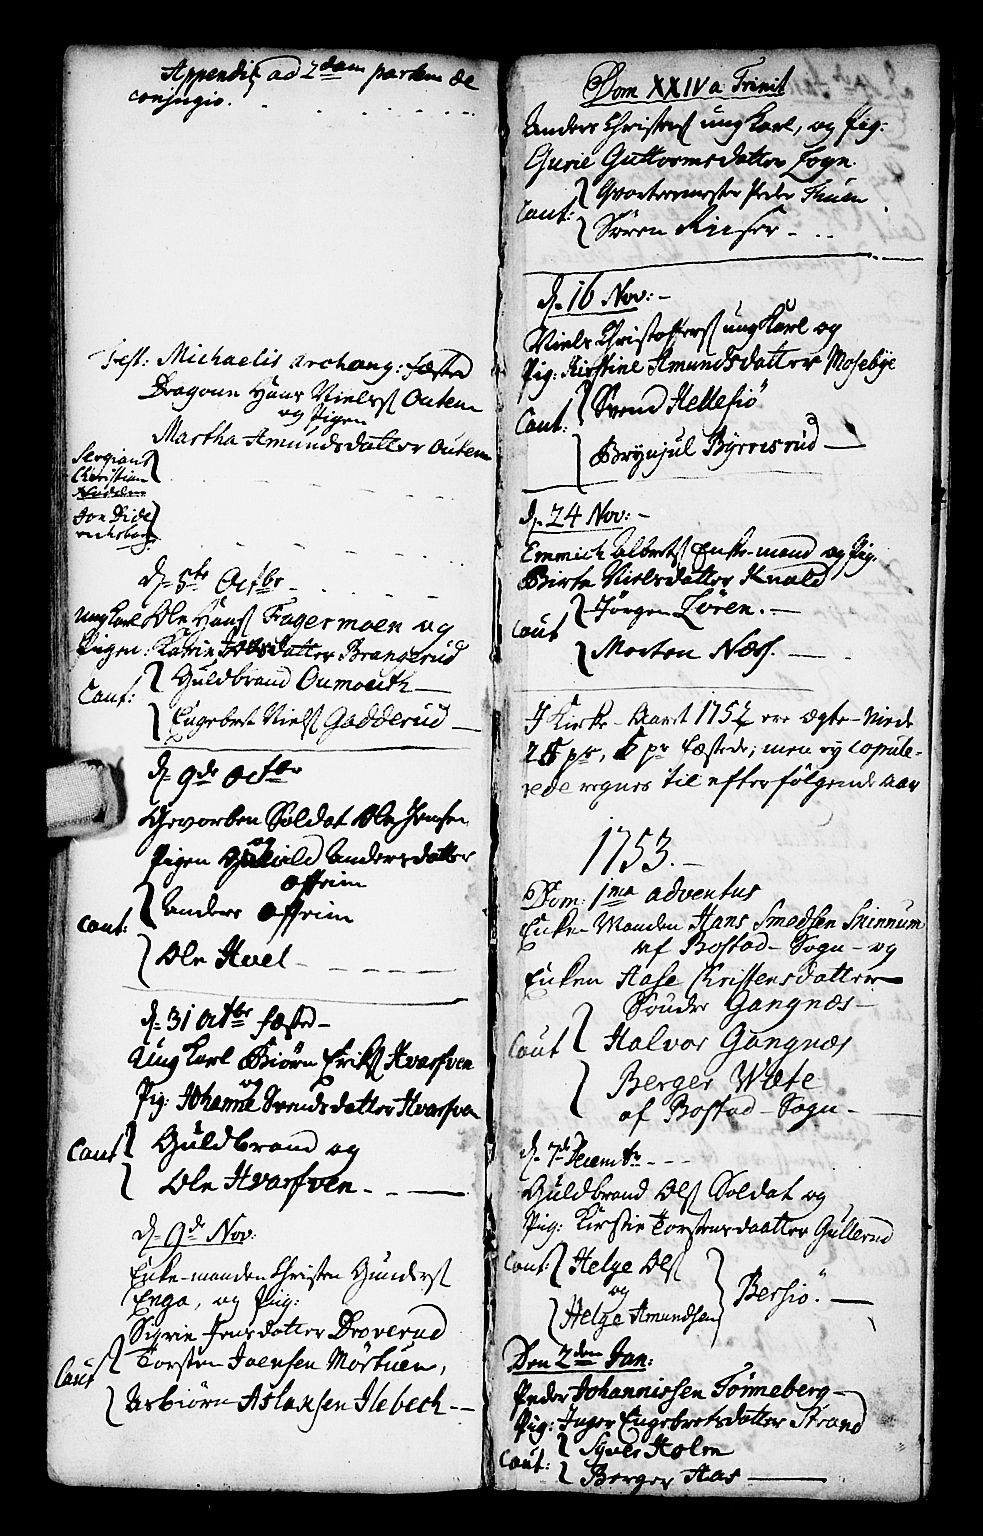 Appendix ad 2dam partem de
conjugio.
Fest: Michaelis archang: fæsted
Dragoun Hans Nielss Outem
og Pigen
Martha Amundsdatter Outem
Sergiant
Christian
Jon Dide
richsborg
d. 5te Octbr
ungKarl Ole Hanss Fagermoen og
Pigen: Karin Joensdatter Brangerud
Caut: Guldbrand Oumouth
Engebret Nielss Gadderud
d. 9de octbr
Gevorben Soldat Ole Jensen
og
Pigen Andersdatter
Affrim
Caut: Anders Affrim
Ole Hvel
d. 31 octbr fæsted
Ung Karl Biørn Erikss Hvarfven
og
Pig: Johanne Svendsdatter Hvarfven
Caut Guldbrand og
Ole Hvarfven
d. 9de Nov:
Enke-manden Christen Gunderss
Enga, og Piig:
Sigrie Jensdatter Droverud
Caut Torsten Joensen Mørtuen,
Asbiørn Aslaksen Ilebech
Dom XXIVa Trinit
Anders Christenss ung Karl, og Pig:
Gurie Guttormsdatter Logn
Caut: Qvartermester Peder Thuen
Søren Rinser
d. 16 Nov:
Niels Christofferss ungKarl og
Pig: Kirstine Amundsdatter Mosebye
Caut: Svend Hellesiö
Brynjul Byrresrud
d. 24 Nov:
Emmich Albertss Enke-mand og Pig.
Birte Nielsdatter Knald
Caut Jörgen Lören.
Morten Næss.
I Kirke-Aaret 1752 ere ægte-viede
25 pr, 5 pr fæstede; men ey copule-
rede regnes til efterfölgende aar
1753.
Dom: 1ma adventus
Enke-Manden Hans Smedsen Skinnum
af Bostad-Sogn og
Enken Aase Kristensdatter
Sönder Gangnæs
Caut Halvor Gangnæs
Berger Wæte
af Bostad-Sogn
d. 7de Decembr
Guldbrand Olss Soldat og
Pig: Kirstie Torstensdaatter Gullerud
Caut Helge Olss
og
Helge Amundsen
Bersiö.
Den 2den Jan:
Peder Johannissen Tönneberg
Pig: Inger Engebretsdatter Strand
Caut: Syver Holm
Berger Aas